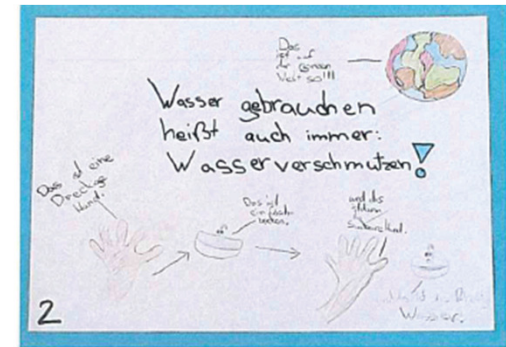 Das
ist auf
der ganzen
Welt so!!!
Wasser gebrauchen
heißt auch immer:
Wasserverschmutzen!
Das ist eine
Dreckige
Hand.
Das ist
ein
becken.
und das
Hand.
Wasser.
2